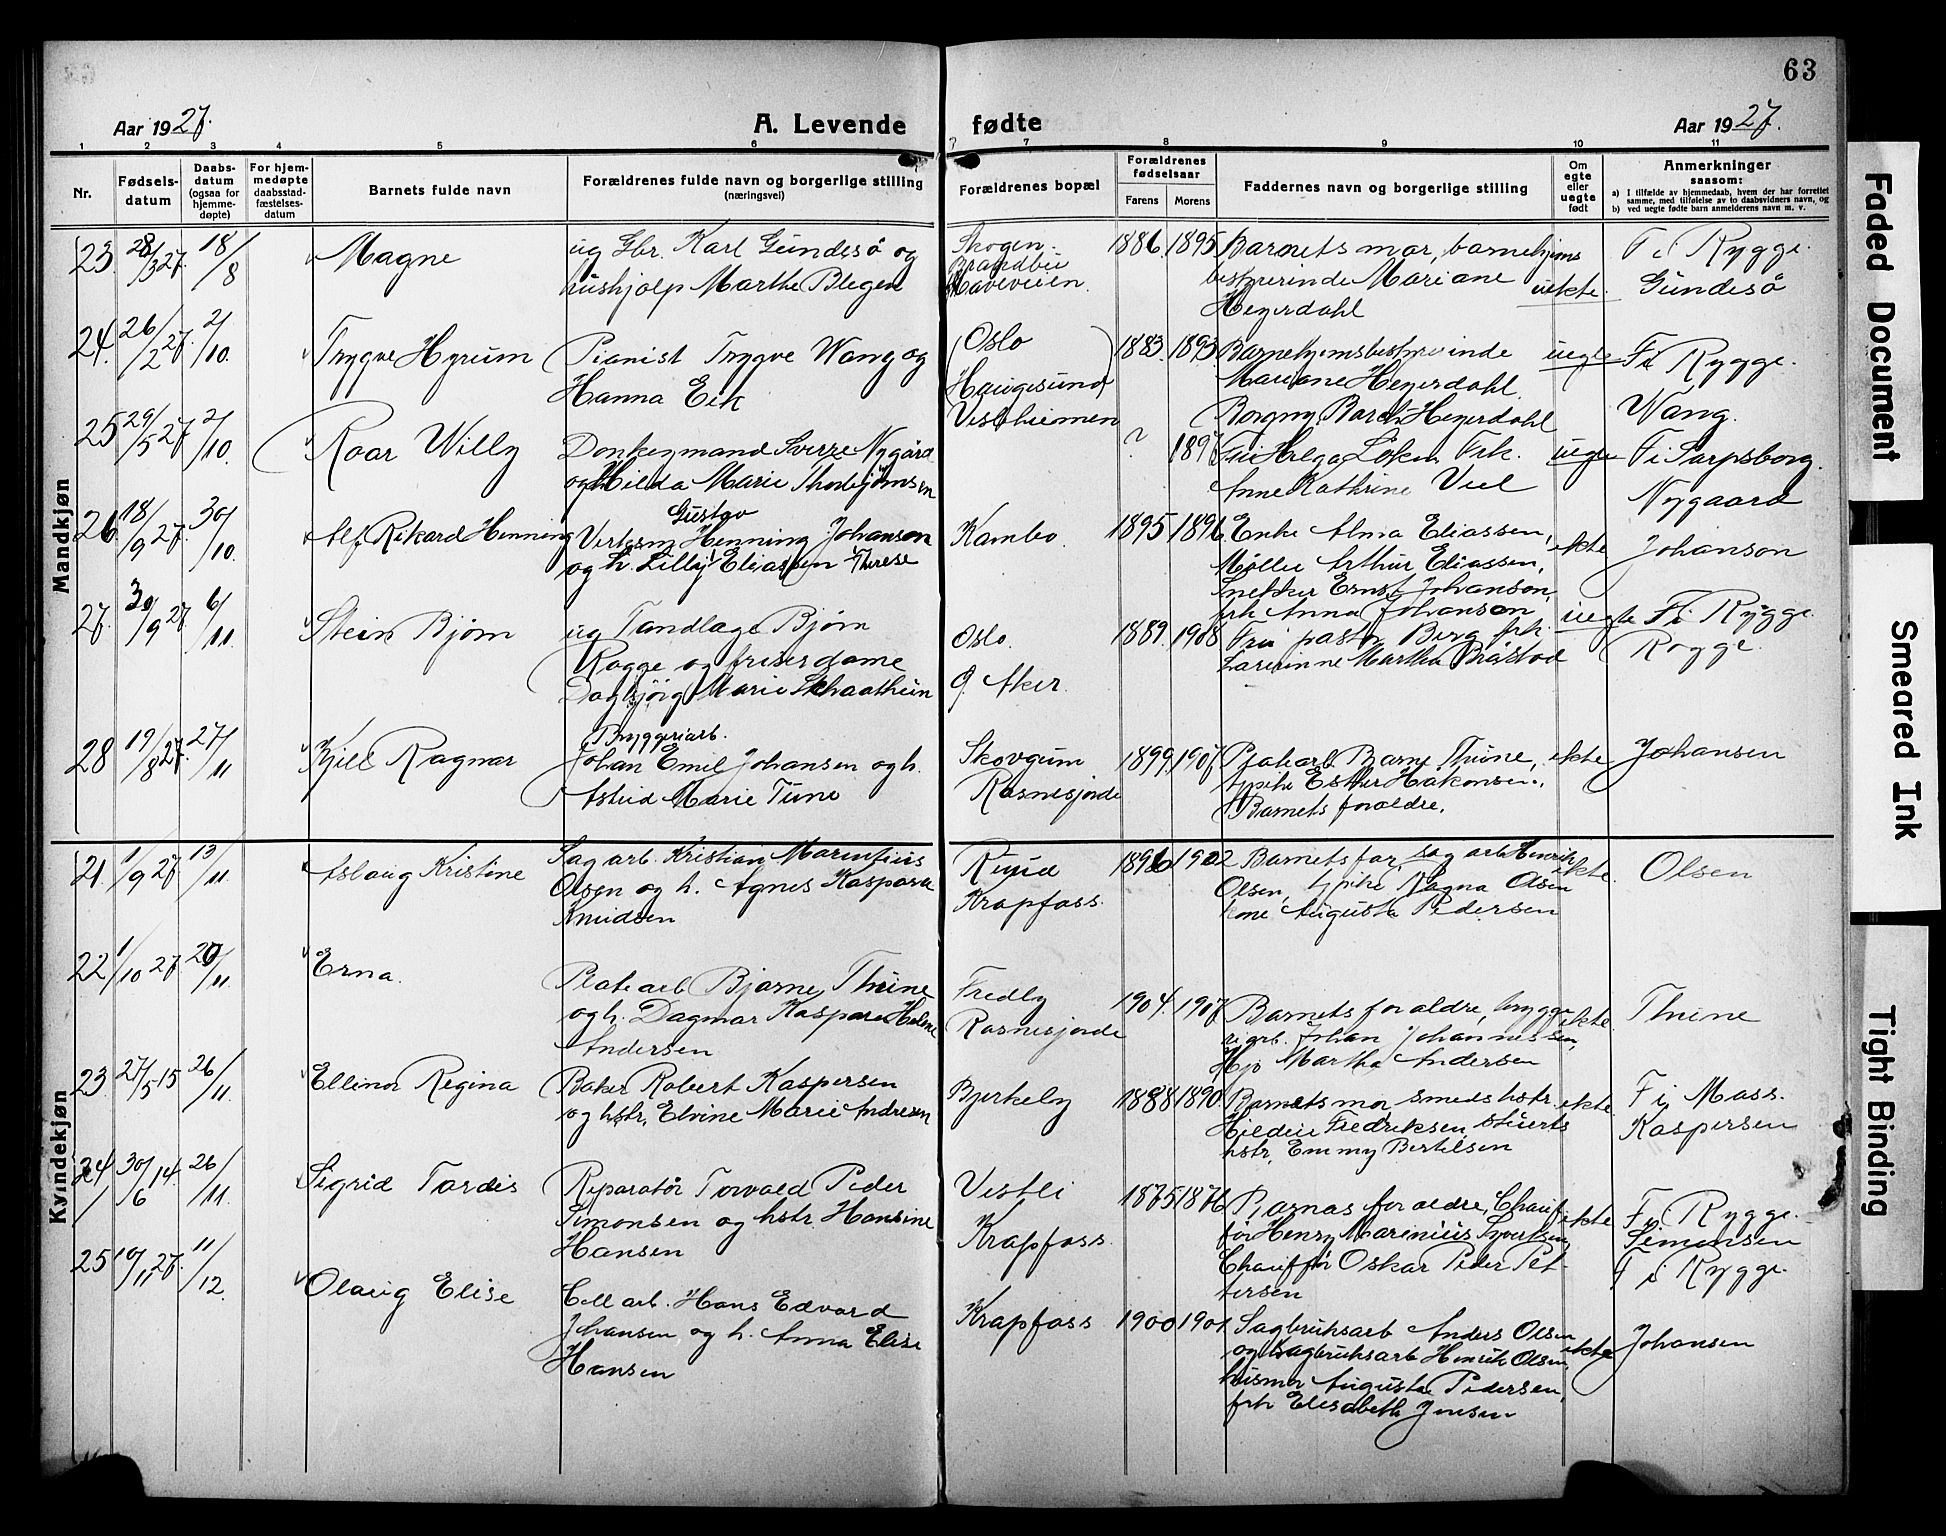 63
Aar 1927.
A. Levende fødte
Aar 1927.
1 2 3 4 5 6 7 8 9 10 11
Nr.
Fødsels-
datum
Daabs-
datum
(ogsaa for
hjemme-
døpte)
For hjem-
medøpte
daabsstad-
fæstelses-
datum
Barnets fulde navn
Forældrenes fulde navn og borgerlige stilling
(næringsvei)
Forældrenes bopæl
Forældrenes
fødselsaar
Farens Morens
Faddernes navn og borgerlige stilling
Om
egte
eller
uegte
født
Anmerkninger
saasom:
a) I tilfælde av hjemmedaab, hvem der har forrettet
samme, med tilføielse av to daabsvidners navn, og
b) ved uegte fødte barn anmelderens navn m. v.
Mandkjøn
23. 28/3 27. 18/8
Magne
ug Gbr. Karl Gundesø og
hushjælp Marthe Blegen
Skogen.
1886 1895
Barnets mor, barnehjems
bestyrerinde Mariane
Heyerdahl
uekte.
F. i Rygge.
Gundesø
24. 26/2 27. 2/10.
Trygve Hyrum
Pianist Trygve Wang og
Hanna Eek
Oslo
Haugesund
1883. 1893.
Barnehjemsbestyrerinde
Mariane Heyerdahl.
Borgny Barch Heyerdahl
uegte
F. i Rygge.
Wang.
25 29/5 27. 2/10.
Roar Willy
Donkeymand Sverre Nygård
og Hilda Marie Thorbjörnsen
Vestheimen
?
Helga Löken Frk.
Anne Kathrine Viel
uegte
F. i Sarpsborg.
Nygaard
26. 18/9 27. 30/10.
Alf Rikard Henning
Gustav
Verksm Henning Johanson
og h. Lilly Eliassen Therese
Kambo.
1895 1896
Enke Alma Eliassen,
Møller Arthur Eliassen,
Snekker Ernst Johanson,
frk Anna Johanson
ekte
Johanson
27. 30/9 27 6/11
Stein Bjørn
ug Tandlæge Bjørn
Rogge og friserdame
Dagbjörg Marie Skaathun
Oslo.
Ø. Aker.
1889. 1908
Fru pastor Berg frk.
Lærerinne Martha Bråstad
uegte
F. i Rygge.
Rogge.
28 19/8 27. 27/11
Kjell Ragnar
Bryggeriarb.
Johan Emil Johansen og h.
Astrid Marie Tune
Skovgum
Rosnesjorde
1899. 1907.
Platearb. Barne Thune,
tjpike Esther Hakonsen.
Barnets foraldre.
ekte
Johansen
Kvindekjøn
21. 1/9 27. 13/11.
Aslaug Kristine
Sagarb. Kristian Marentius
Olsen og h. Agnes Kaspara
Knudsen
Krapfoss.
1896 1902
Barnets far, sagarb Henrik
Olsen, tjpike Ragna Olsen
kone Augusta Pedersen
ekte.
Olsen
22 1/10 27. 20/11.
Erna.
Platearb Bjarne Thune
og h. Dagmar Kaspara Helene
Andersen
Fredly
Rosnesjorde
1904. 1907.
Barnets foraldre, brygge
riarb. Johan Johannessen,
Hjo Martha Andersen
ekte.
Thune
23. 27/5 15 26/11.
Ellinor Regina
Baker Robert Kaspersen
og hstr. Elvine Marie Andresen
Bjerkely
1888 1890.
Barnets mor smeds hstr.
Hildur Fredriksen stuerts
hstr. Emmy Bertelsen
ekte.
F. i Moss.
Kaspersen
24 30/6 14. 26/11.
Sigrid Tordis
Reparatør Torvald Peder
Simonsen og hstr. Hansine
Hansen
Vestli
Krapfoss
1875 1876
Barnas foraldre, Chauf
før Henry Marenius Syvertsen,
Chauffør Oskar Peder Pet-
tersen
ekte
F. i Rygge.
Simonsen
25 10/11 27. 11/12.
Olaug Elise
Cellarb. Hans Edvard
Johansen og h. Anna Elise
Hansen
Krapfoss
1900 1901
Sagbruksarb Anders Olsen
og Sagbruksarb Henrik Olsen,
husmor Augusta Pedersen,
frk Elisabeth Jensen
ekte
F. i Rygge.
Johansen
Faded Document
Smeared Ink
Tight Binding